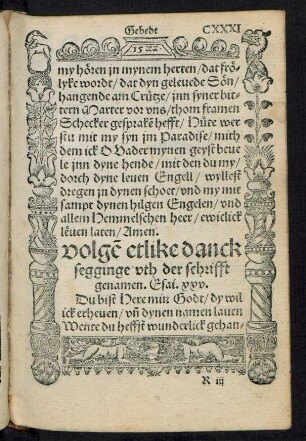 Gebedt CXXXI
1522
my hören jn mynem herten/dat frö-
lyke wordt/dat dyn geleuede Sön/
hangende am Crütze/jnn syner bit-
tern Marter vor vns/thom framen
Schecker gesprake hefft/Hüte wer
stu mit my syn jm Paradise/mith
dem ick O Vader mynen geyst beue
le jnn dyne hende/mit den du my/
dorch dyne leuen Engell/wyllest
dregen jn dynen schoet/vnd my mit
sampt dynen hilgen Engelen/vnd
allem Hemelschen heer/ewiclick
leuen laten/Amen.
Volgē etlike danck
segginge vth der schrifft
genamen. Esai. xxv.
Du bist Here min Godt/dy wil
ick erheuen/vñ dynen namen lauen
Wente du heffst wunderlick gehan-
R iij